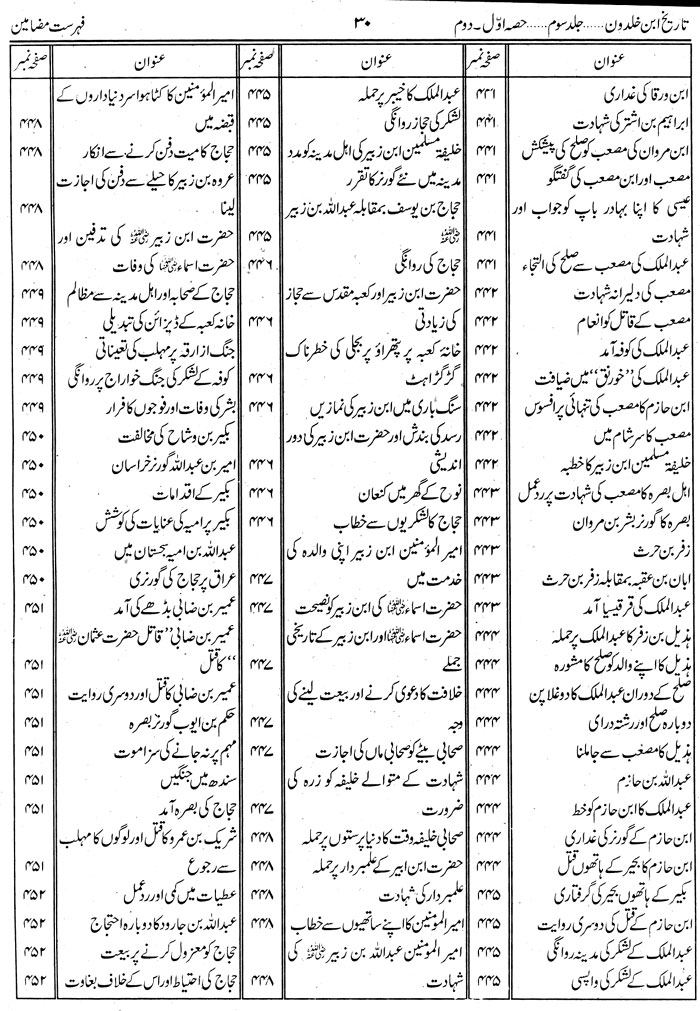 تاریخ ابن خلدون ...... جلد سوم ...... حصہ اوّل ۔ دوم
۳۰
فہرست مضامین
عنوان
صفحہ نمبر
ابن ورقا کی غداری ۴۴۱
ابراہیم بن اشتر کی شہادت ۴۴۱
ابن مروان کی مصعب کو صلح کی پیشکش ۴۴۱
مصعب اور ابن مصعب کی گفتگو ۴۴۱
عیسی کا اپنا بہادر باپ کو جواب اور
شہادت ۴۴۱
عبدالملک کی مصعب سے صلح کی التجاء ۴۴۱
مصعب کی دلیرانہ شہادت ۴۴۲
مصعب کے قاتل کو انعام ۴۴۲
عبدالملک کی کوفہ آمد ۴۴۲
عبدالملک کی ”خورنق“ میں ضیافت ۴۴۲
ابن حازم کا مصعب کی تنہائی پر افسوس ۴۴۲
مصعب کا سر شام میں ۴۴۲
خلیفۃ مسلمین ابن زبیر کا خطبہ ۴۴۲
اہل بصرہ کا مصعب کی شہادت پر ردعمل ۴۴۳
بصرہ کا گورنر بشر بن مروان ۴۴۳
زفر بن حرث ۴۴۳
ابان بن عقبہ بمقابلہ زفر بن حرث ۴۴۳
عبدالملک کی قرقیسیا آمد ۴۴۳
ہذیل بن زفر کا عبدالملک پر حملہ ۴۴۴
ہذیل کا اپنے والد کو صلح کا مشورہ ۴۴۴
صلح کے دوران عبدالملک کا دوغلا پن ۴۴۴
دوبارہ صلح اور رشتہ داری ۴۴۴
ہذیل کا مصعب سے جا ملنا ۴۴۴
عبداللہ بن حازم ۴۴۴
عبدالملک کا ابن حازم کو خط ۴۴۴
ابن حازم کے گورنر کی غداری ۴۴۴
ابن حازم کا بجیر کے ہاتھوں قتل ۴۴۴
بکیر کے ہاتھوں بجیر کی گرفتاری ۴۴۵
ابن حازم کے قتل کی دوسری روایت ۴۴۵
عبدالملک کے لشکر کی مدینہ روانگی ۴۴۵
عبدالملک کے لشکر کی واپسی ۴۴۵
عنوان
صفحہ نمبر
عبدالملک کا خیبر پر حملہ ۴۴۵
لشکر کی حجاز روانگی ۴۴۵
خلیفۃ مسلمین ابن زبیر کی اہل مدینہ کو مدد ۴۴۵
مدینہ میں نئے گورنر کا تقرر ۴۴۵
حجاج بن یوسف بمقابلہ عبداللہ بن زبیر
رضی اللہ عنہ ۴۴۵
حجاج کی روانگی ۴۴۶
حضرت ابن زبیر اور کعبہ مقدس سے حجاز
کی زیادتی ۴۴۶
خانۂ کعبہ پر پتھراؤ پر بجلی کی خطرناک
گڑگڑاہٹ ۴۴۶
سنگ باری میں ابن زبیر کی نمازیں ۴۴۶
رسد کی بندش اور حضرت ابن زبیر کی دور
اندیشی ۴۴۶
نوح کے گھر میں کنعان ۴۴۶
حجاج کا لشکریوں سے خطاب ۴۴۶
امیر المؤمنین ابن زبیر اپنی والدہ کی
خدمت میں ۴۴۷
حضرت اسماء رضی اللہ عنہا کی ابن زبیر کو نصیحت ۴۴۷
حضرت اسماء رضی اللہ عنہا اور ابن زبیر کے تاریخی
جملے ۴۴۷
خلافت کا دعوی کرنے اور بیعت لینے کی
وجہ ۴۴۷
صحابی بیٹے کو صحابی ماں کی اجازت ۴۴۷
شہادت کے متوالے خلیفہ کو زرہ کی
ضرورت ۴۴۷
صحابی خلیفہ وقت کا دنیا پرستوں پر حملہ ۴۴۸
حضرت ابن ابیر کے علمبردار پر حملہ ۴۴۸
علمبردار کی شہادت ۴۴۸
امیر المؤمنین کا اپنے ساتھیوں سے خطاب ۴۴۸
امیر المؤمنین عبداللہ بن زبیر رضی اللہ عنہ کی
شہادت ۴۴۸
عنوان
صفحہ نمبر
امیر المؤمنین کا کٹا ہوا سر دنیا داروں کے
قبضہ میں ۴۴۸
حجاج کا میت دفن کرنے سے انکار ۴۴۸
عروہ بن زبیر کا حیلے سے دفن کی اجازت
لینا ۴۴۸
حضرت ابن زبیر رضی اللہ عنہ کی تدفین اور
حضرت اسماء رضی اللہ عنہا کی وفات ۴۴۸
حجاج کے صحابہ اور اہل مدینہ سے مظالم ۴۴۹
خانہ کعبہ کے ڈیزائن کی تبدیلی ۴۴۹
جنگ ازارقہ پر مہلب کی تعیناتی ۴۴۹
کوفہ کے لشکر کی جنگ خوارج پر روانگی ۴۴۹
بشر کی وفات اور فوجوں کا فرار ۴۴۹
بکیر بن وشاح کی مخالفت ۴۵۰
امیر بن عبداللہ گورنر خراسان ۴۵۰
بکیر کے اقدامات ۴۵۰
بکیر پر امیہ کی عنایات کی کوشش ۴۵۰
عبداللہ بن امیہ سجستان میں ۴۵۰
عراق پر حجاج کی گورنری ۴۵۰
عمیر بن ضابی بڈھے کی آمد ۴۵۱
عمیر بن ضابی ”قاتل حضرت عثمان رضی اللہ عنہ
“ کا قتل ۴۵۱
عمیر بن ضابی کا قتل اور دوسری روایت ۴۵۱
حکم بن ایوب گورنر بصرہ ۴۵۱
مہم پر نہ جانے کی سزا موت ۴۵۱
سندھ میں جنگیں ۴۵۱
حجاج کی بصرہ آمد ۴۵۱
شریک بن عمرو کا قتل اور لوگوں کا مہلب
سے رجوع ۴۵۱
عطیات میں کمی اور ردعمل ۴۵۲
عبداللہ بن جارود کا دوبارہ احتجاج ۴۵۲
حجاج کو معزول کرنے پر بیعت ۴۵۲
حجاج کی احتیاط اور اس کے خلاف بغاوت ۴۵۲